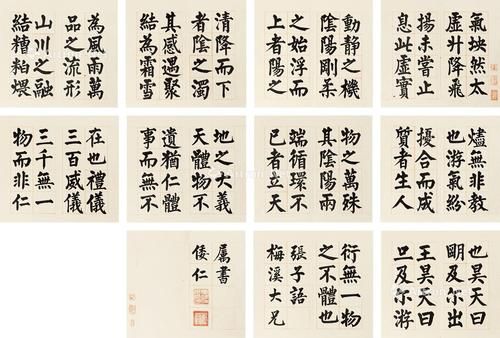 氣坱然太
虛升降飛
揚未嘗止
息此虛實
動靜之機
陰陽剛柔
之始浮而
上者陽之
清降而下
者陰之濁
其感遇聚
結為霜雪
為風雨萬
品之流形
山川之融
結糟粕煨
燼無非教
也游氣紛
擾合而成
質者生人
物之萬殊
其陰陽兩
端循環不
已者立天
地之大義
天體物不
遺猶仁體
事而無不
在也禮儀
三百威儀
三千無一
物而非仁
也昊天曰
明及尔出
王昊天曰
旦及尔游
衍無一物
之不體也
張子語
梅溪大兄
屬書
倭仁